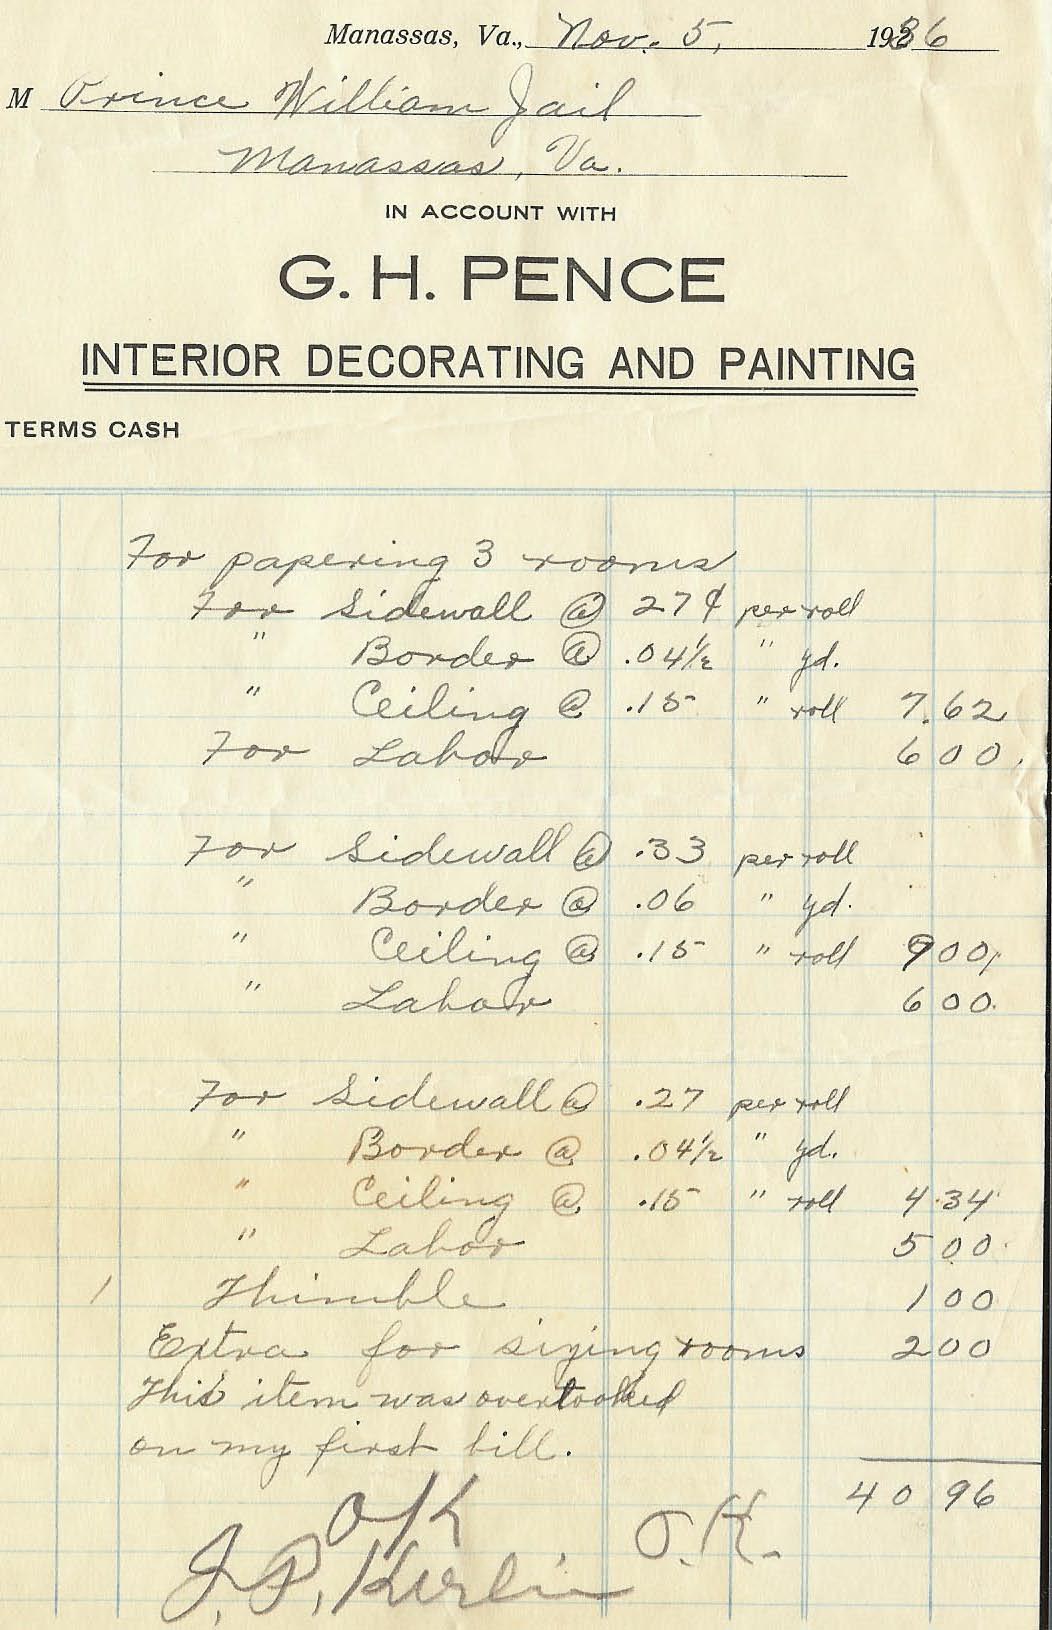 Manassas, Va., Nov. 5, 1936
M Prince William Jail
Manassas, Va.
IN ACCOUNT WITH
G. H. PENCE
INTERIOR DECORATING AND PAINTING
TERMS CASH
For papering 3 rooms
For Sidewall @ 27¢ per roll
" Border @ .04½ " yd.
" Ceiling @ .15 " roll 7.62
For Labor 6 00
For Sidewall @ .33 per roll
" Border @ .06 " yd.
" Ceiling @ .15 " roll 9 00
" Labor 6 00
For Sidewall @ .27 per roll
" Border @ .04½ " yd.
" Ceiling @ .15 " roll 4.34
" Labor 5 00
1 Thimble 1 00
Extra for sizing rooms 2 00
This item was overlooked
on my first bill.
40 96
OK O.K.
J. P. Kerlin